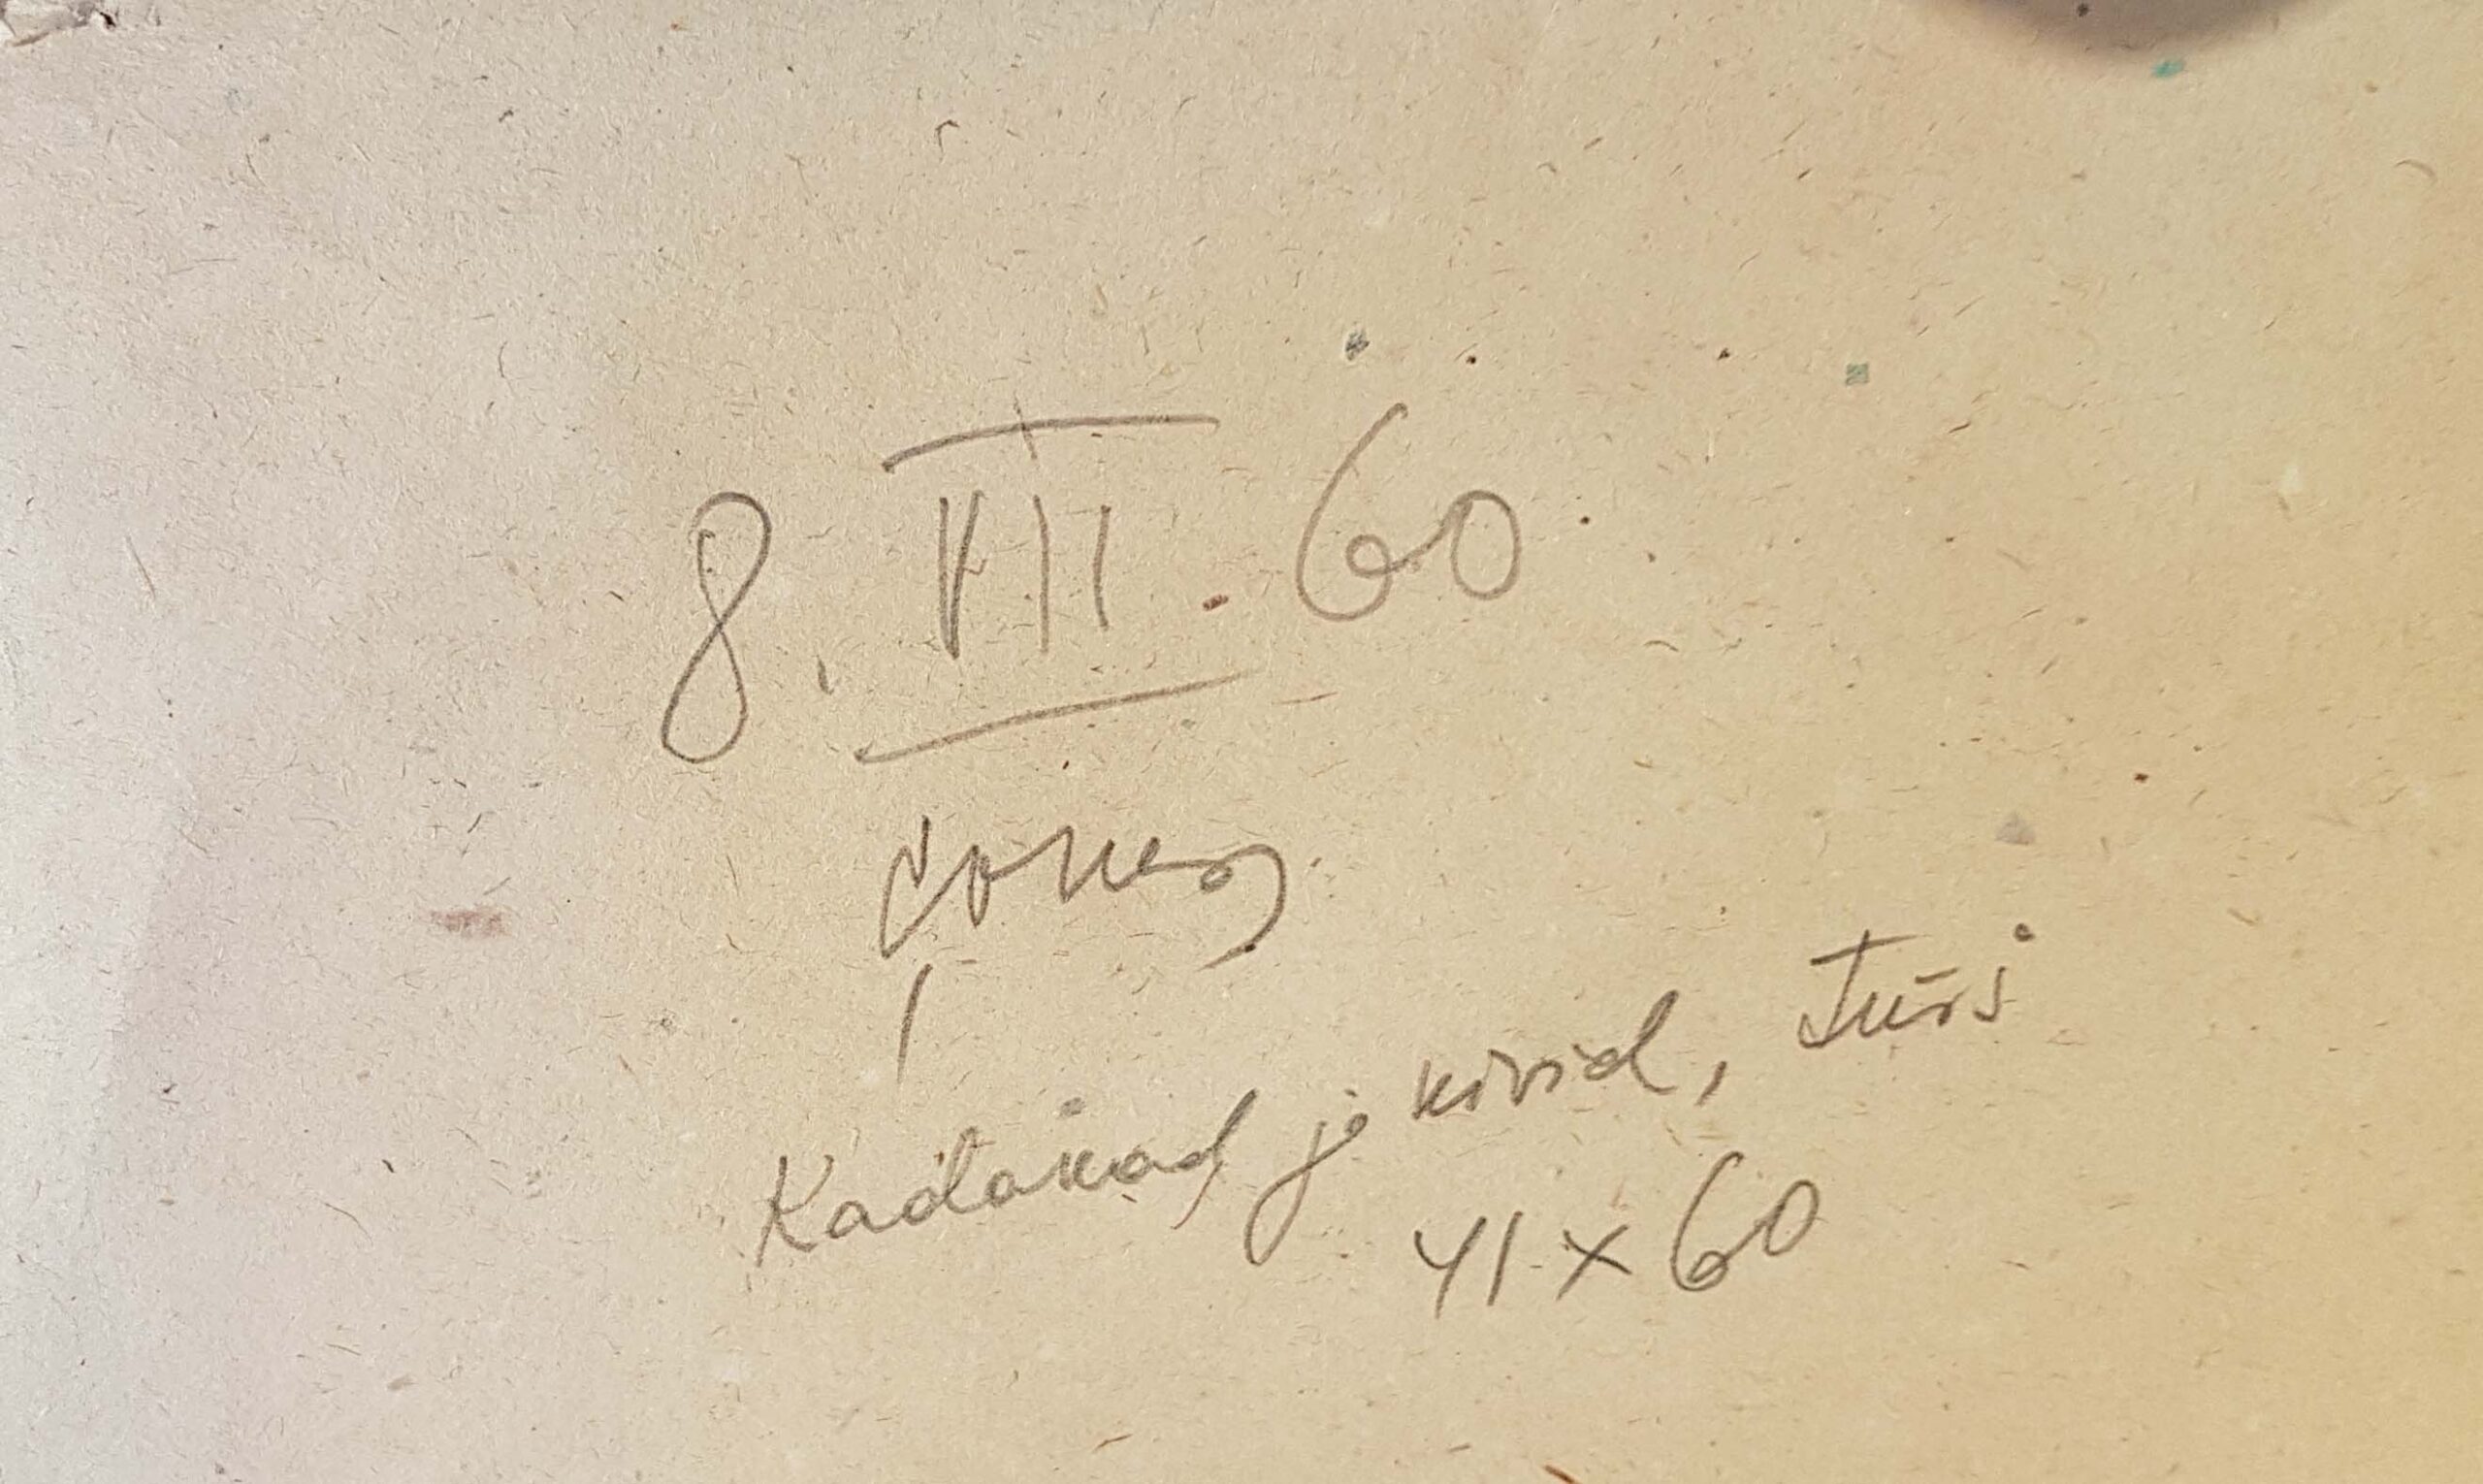 8. VII. 60
Kadakad ja kivid, Türi
41 x 60